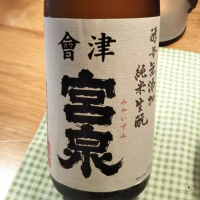 會津
宮泉
みやいずみ
純米生酛